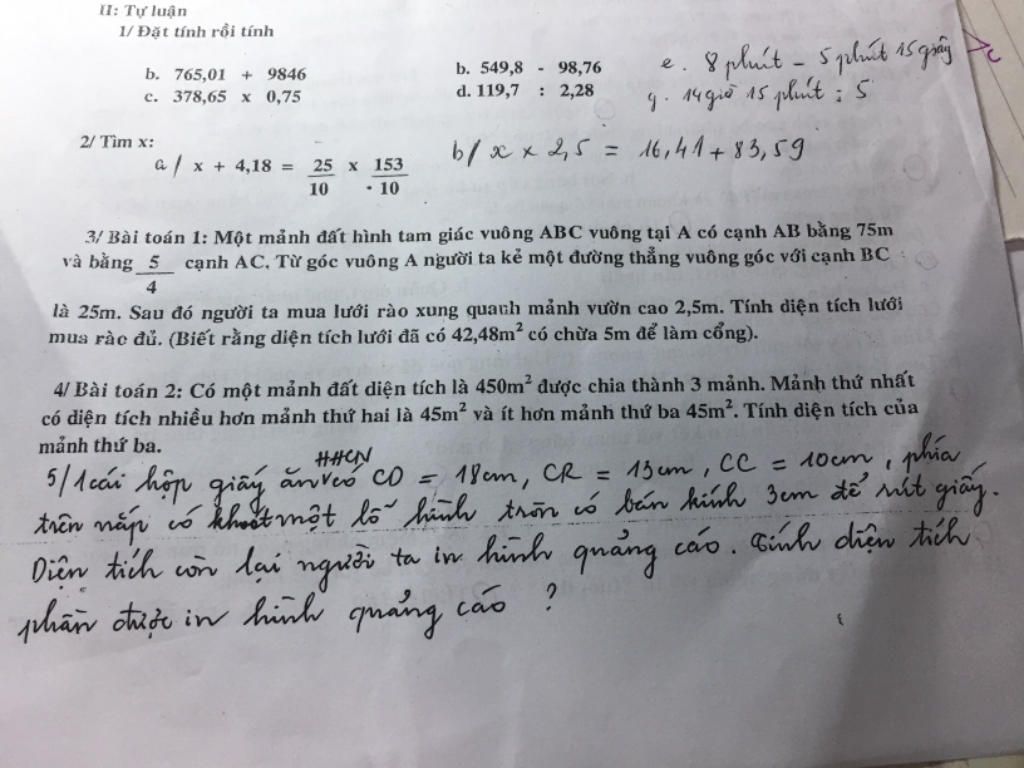 II: Tự luận
1/ Đặt tính rồi tính
b. 765,01 + 9846
b. 549,8 - 98,76
e. 8 phút - 5 phút 15 giây
c. 378,65 x 0,75
d. 119,7 : 2,28
g. 14 giờ 15 phút : 5
2/ Tìm x:
a/ x + 4,18 = 25/10 x 153/10
b/ x x 2,5 = 16,41 + 83,59
3/ Bài toán 1: Một mảnh đất hình tam giác vuông ABC vuông tại A có cạnh AB bằng 75m
và bằng 5/4 cạnh AC. Từ góc vuông A người ta kẻ một đường thẳng vuông góc với cạnh BC
là 25m. Sau đó người ta mua lưới rào xung quanh mảnh vườn cao 2,5m. Tính diện tích lưới
mua rào đủ. (Biết rằng diện tích lưới đã có 42,48m² có chừa 5m để làm cổng).
4/ Bài toán 2: Có một mảnh đất diện tích là 450m² được chia thành 3 mảnh. Mảnh thứ nhất
có diện tích nhiều hơn mảnh thứ hai là 45m² và ít hơn mảnh thứ ba 45m². Tính diện tích của
mảnh thứ ba.
5/ 1 cái hộp giấy ăn HHCN có CD = 18cm, CR = 13cm, CC = 10cm, phía
trên nắp có khoét một lỗ hình tròn có bán kính 3cm để rút giấy.
Diện tích còn lại người ta in hình quảng cáo. Tính diện tích
phần được in hình quảng cáo ?